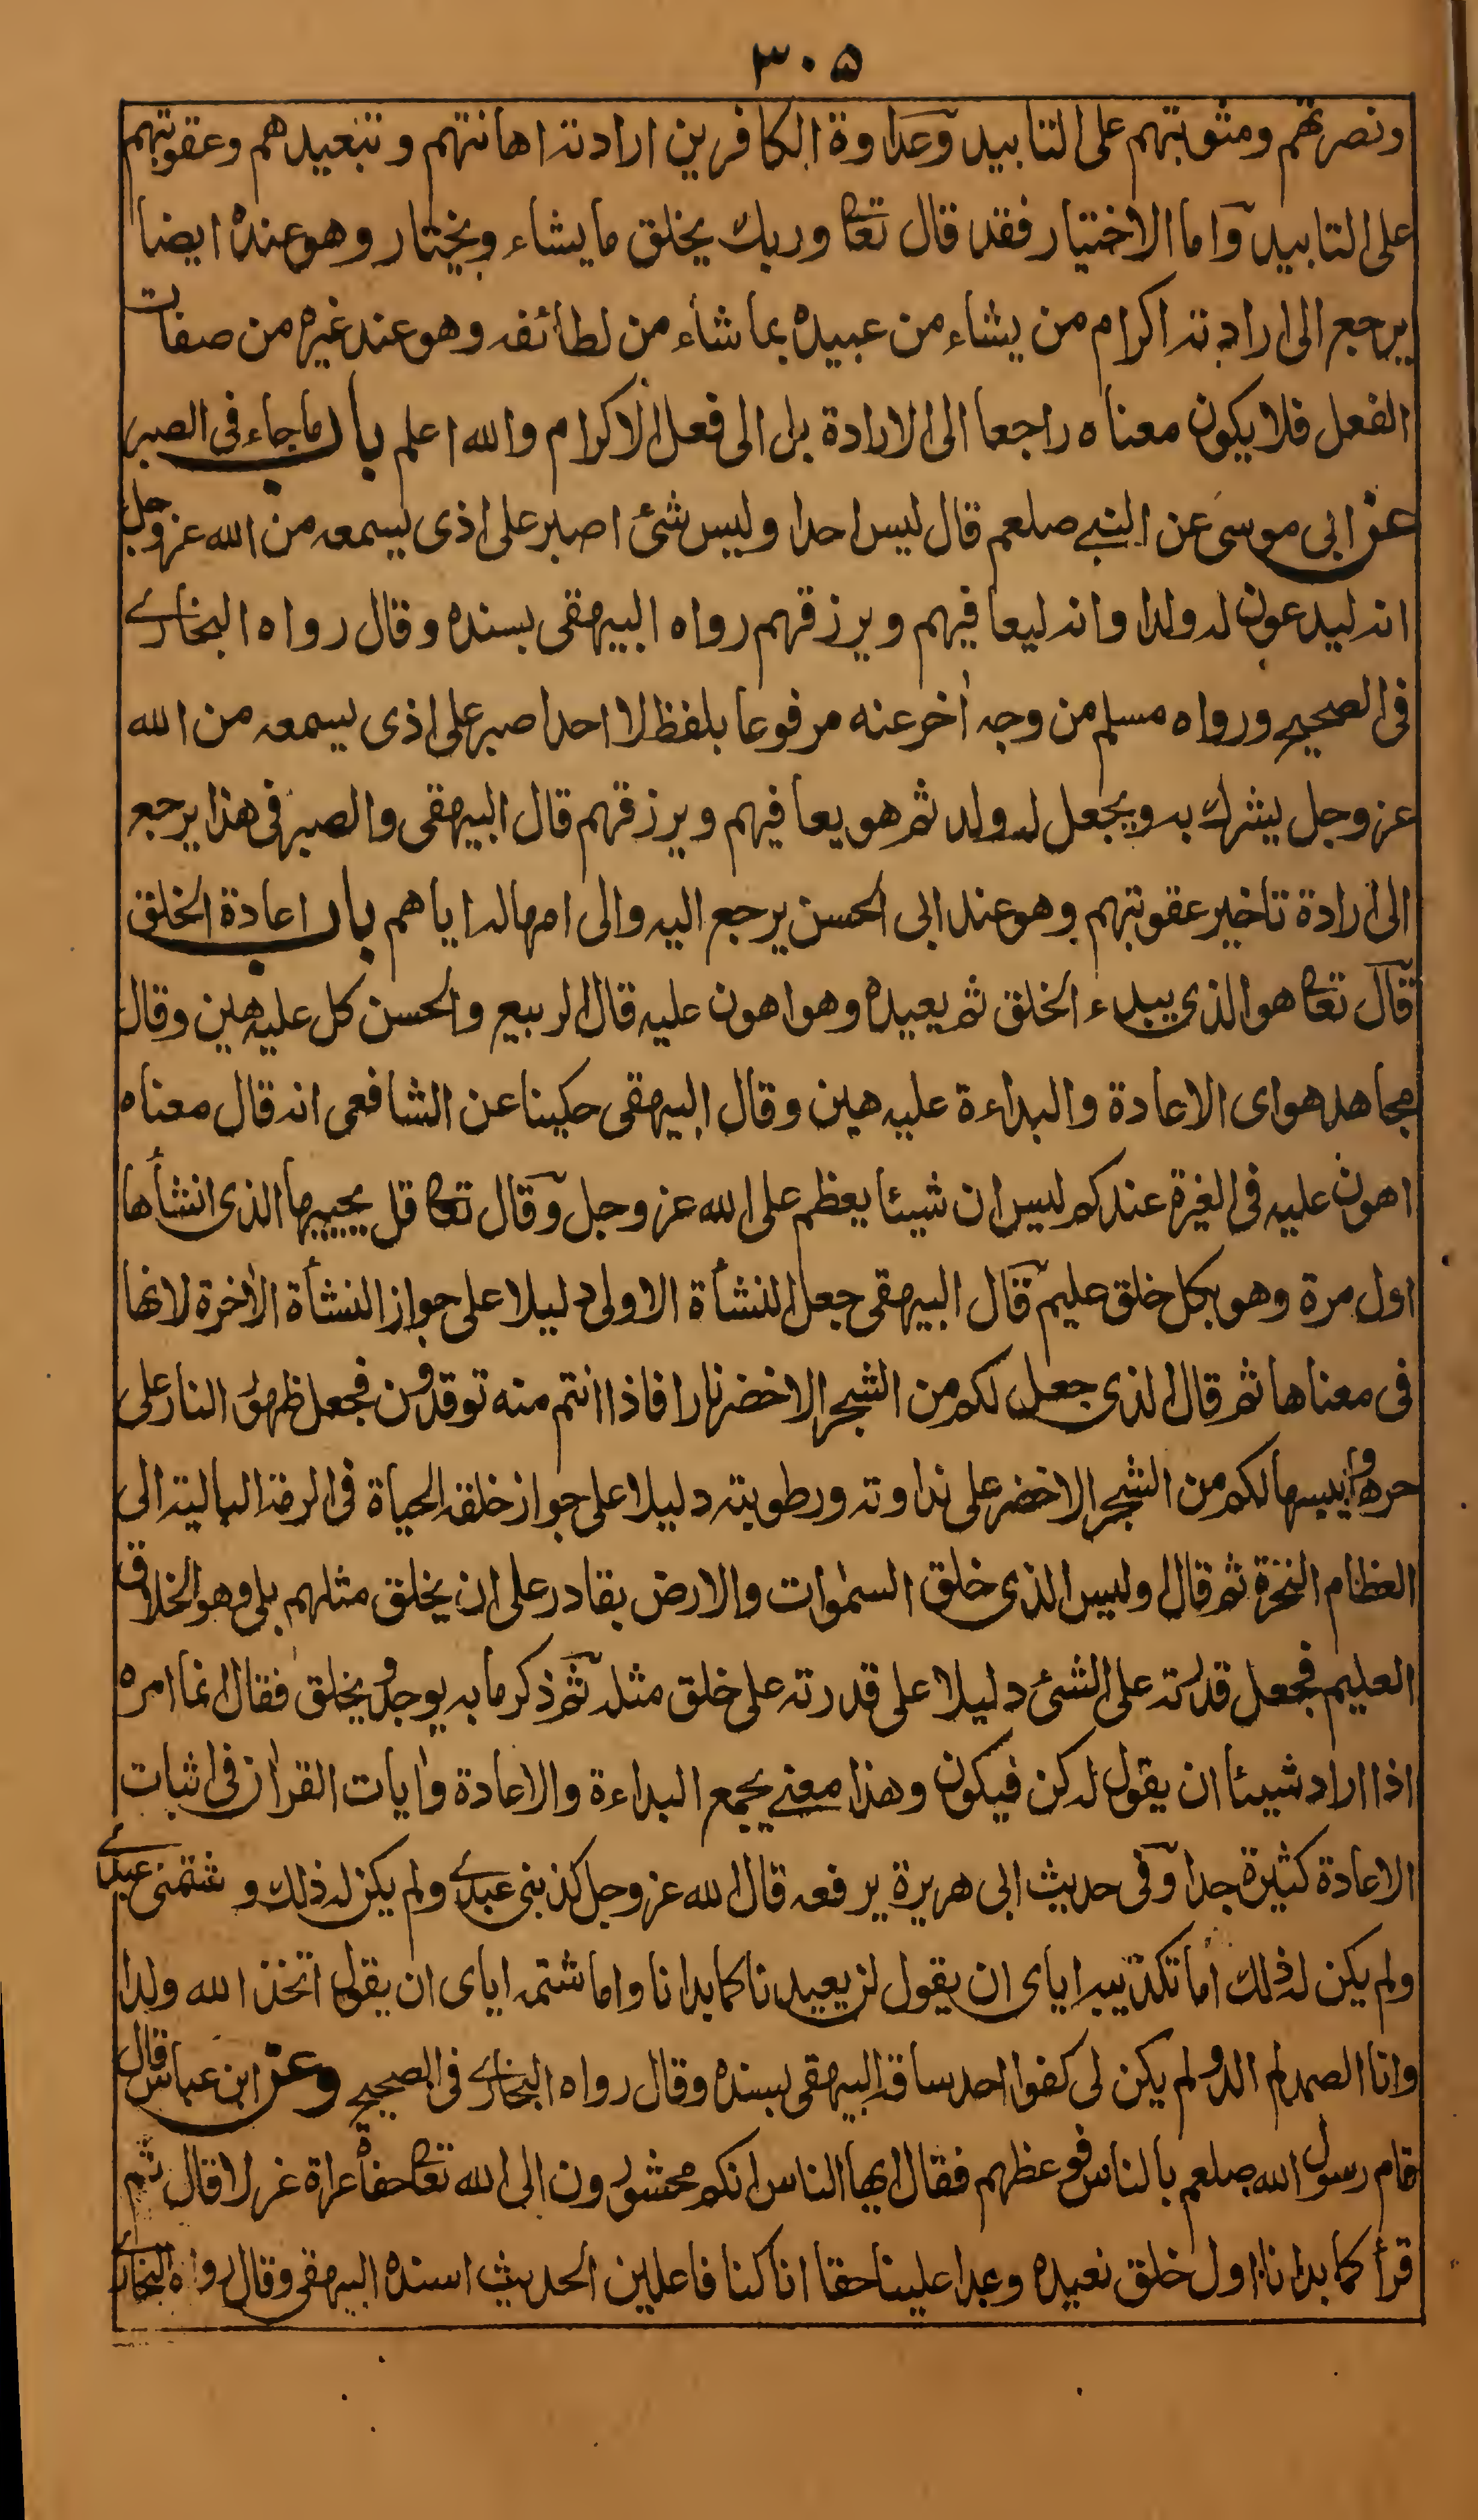 ٣٠٥
ونصرتهم ومثوبتهم على التابيد وعداوة الكافرين ارادته اهانتهم وتبعيدهم وعقوبتهم
على التابيد واما الاختيار فقد قال تعا وربك يخلق ما يشاء ويختار وهو عنده ايضا
يرجع الى ارادته اكرام من يشاء من عبيده بما شاء من لطائفه وهو عند غيره من صفات
الفعل فلا يكون معناه راجعا الى الارادة بل الى فعل الاكرام والله اعلم باب ما جاء فى الصبر
عن ابى موسى عن النبى صلعم قال ليس احدا وليس شئ اصبر على اذى يسمعه من الله عز وجل
انه ليدعون له ولدا وانه ليعافيهم ويرزقهم رواه البيهقى بسنده وقال رواه البخارى
فى الصحيح ورواه مسلم من وجه أخر عنه مرفوعا بلفظ لا احد اصبر على اذى يسمعه من الله
عز وجل يشرك به ويجعل له ولد ثم هو يعافيهم ويرزقهم قال البيهقى والصبر فى هذا يرجع
الى ارادة تاخير عقوبتهم وهو عند ابى الحسن يرجع اليه والى امهاله اياهم باب اعادة الخلق
قال تعا هو الذى يبدء الخلق ثم يعيده وهو اهون عليه قال الربيع والحسن كل عليه هين وقال
مجاهد هو اى الاعادة والبداءة عليه هين وقال البيهقى حكينا عن الشافعى انه قال معناه
اهون عليه فى الغيرة عندكم ليس ان شيئا يعظم على الله عز وجل وقال تعا قل يحييها الذى انشأها
اول مرة وهو بكل خلق عليم قال البيهقى جعل النشأة الاولى دليلا على جواز النشأة الأخرة لانها
فى معناها ثم قال الذى جعل لكم من الشجر الاخضر نارا فاذا انتم منه توقدون فجعل ظهور النار على
حرها ويبسها لكم من الشجر الاخضر على نداوته ورطوبته دليلا على جواز خلقه الحياة فى الرمة البالية الى
العظام النخرة ثم قال وليس الذى خلق السموات والارض بقادر على ان يخلق مثلهم بلى وهو الخلاق
العليم فجعل قدرته على الشئ دليلا على قدرته على خلق مثله ثم ذكر ما به يوجد ويخلق فقال انما امره
اذا اراد شيئا ان يقول له كن فيكون وهذا معنى يجمع البداءة والاعادة وايات القران فى اثبات
الاعادة كثيرة جدا وفى حديث ابى هريرة يرفعه قال الله عز وجل كذبنى عبدى ولم يكن له ذلك وشتمنى عبدى
ولم يكن له ذلك أما تكذيبه اياى ان يقول لن يعيدنا كما بدانا واما شتمه اياى ان يقول اتخذ الله ولدا
وانا الصمد لم الد ولم يكن لى كفوا احد ساقه البيهقى بسنده وقال رواه البخارى فى الصحيح وعن ابن عباس قال
قام رسول الله صلعم بالناس فوعظهم فقال ايها الناس انكم محشورون الى الله تعا حفاة عراة غرلا قال ثم
قرأ كما بدانا اول خلق نعيده وعدا علينا حقا انا كنا فاعلين الحديث اسنده البيهقى وقال رواه البخارى